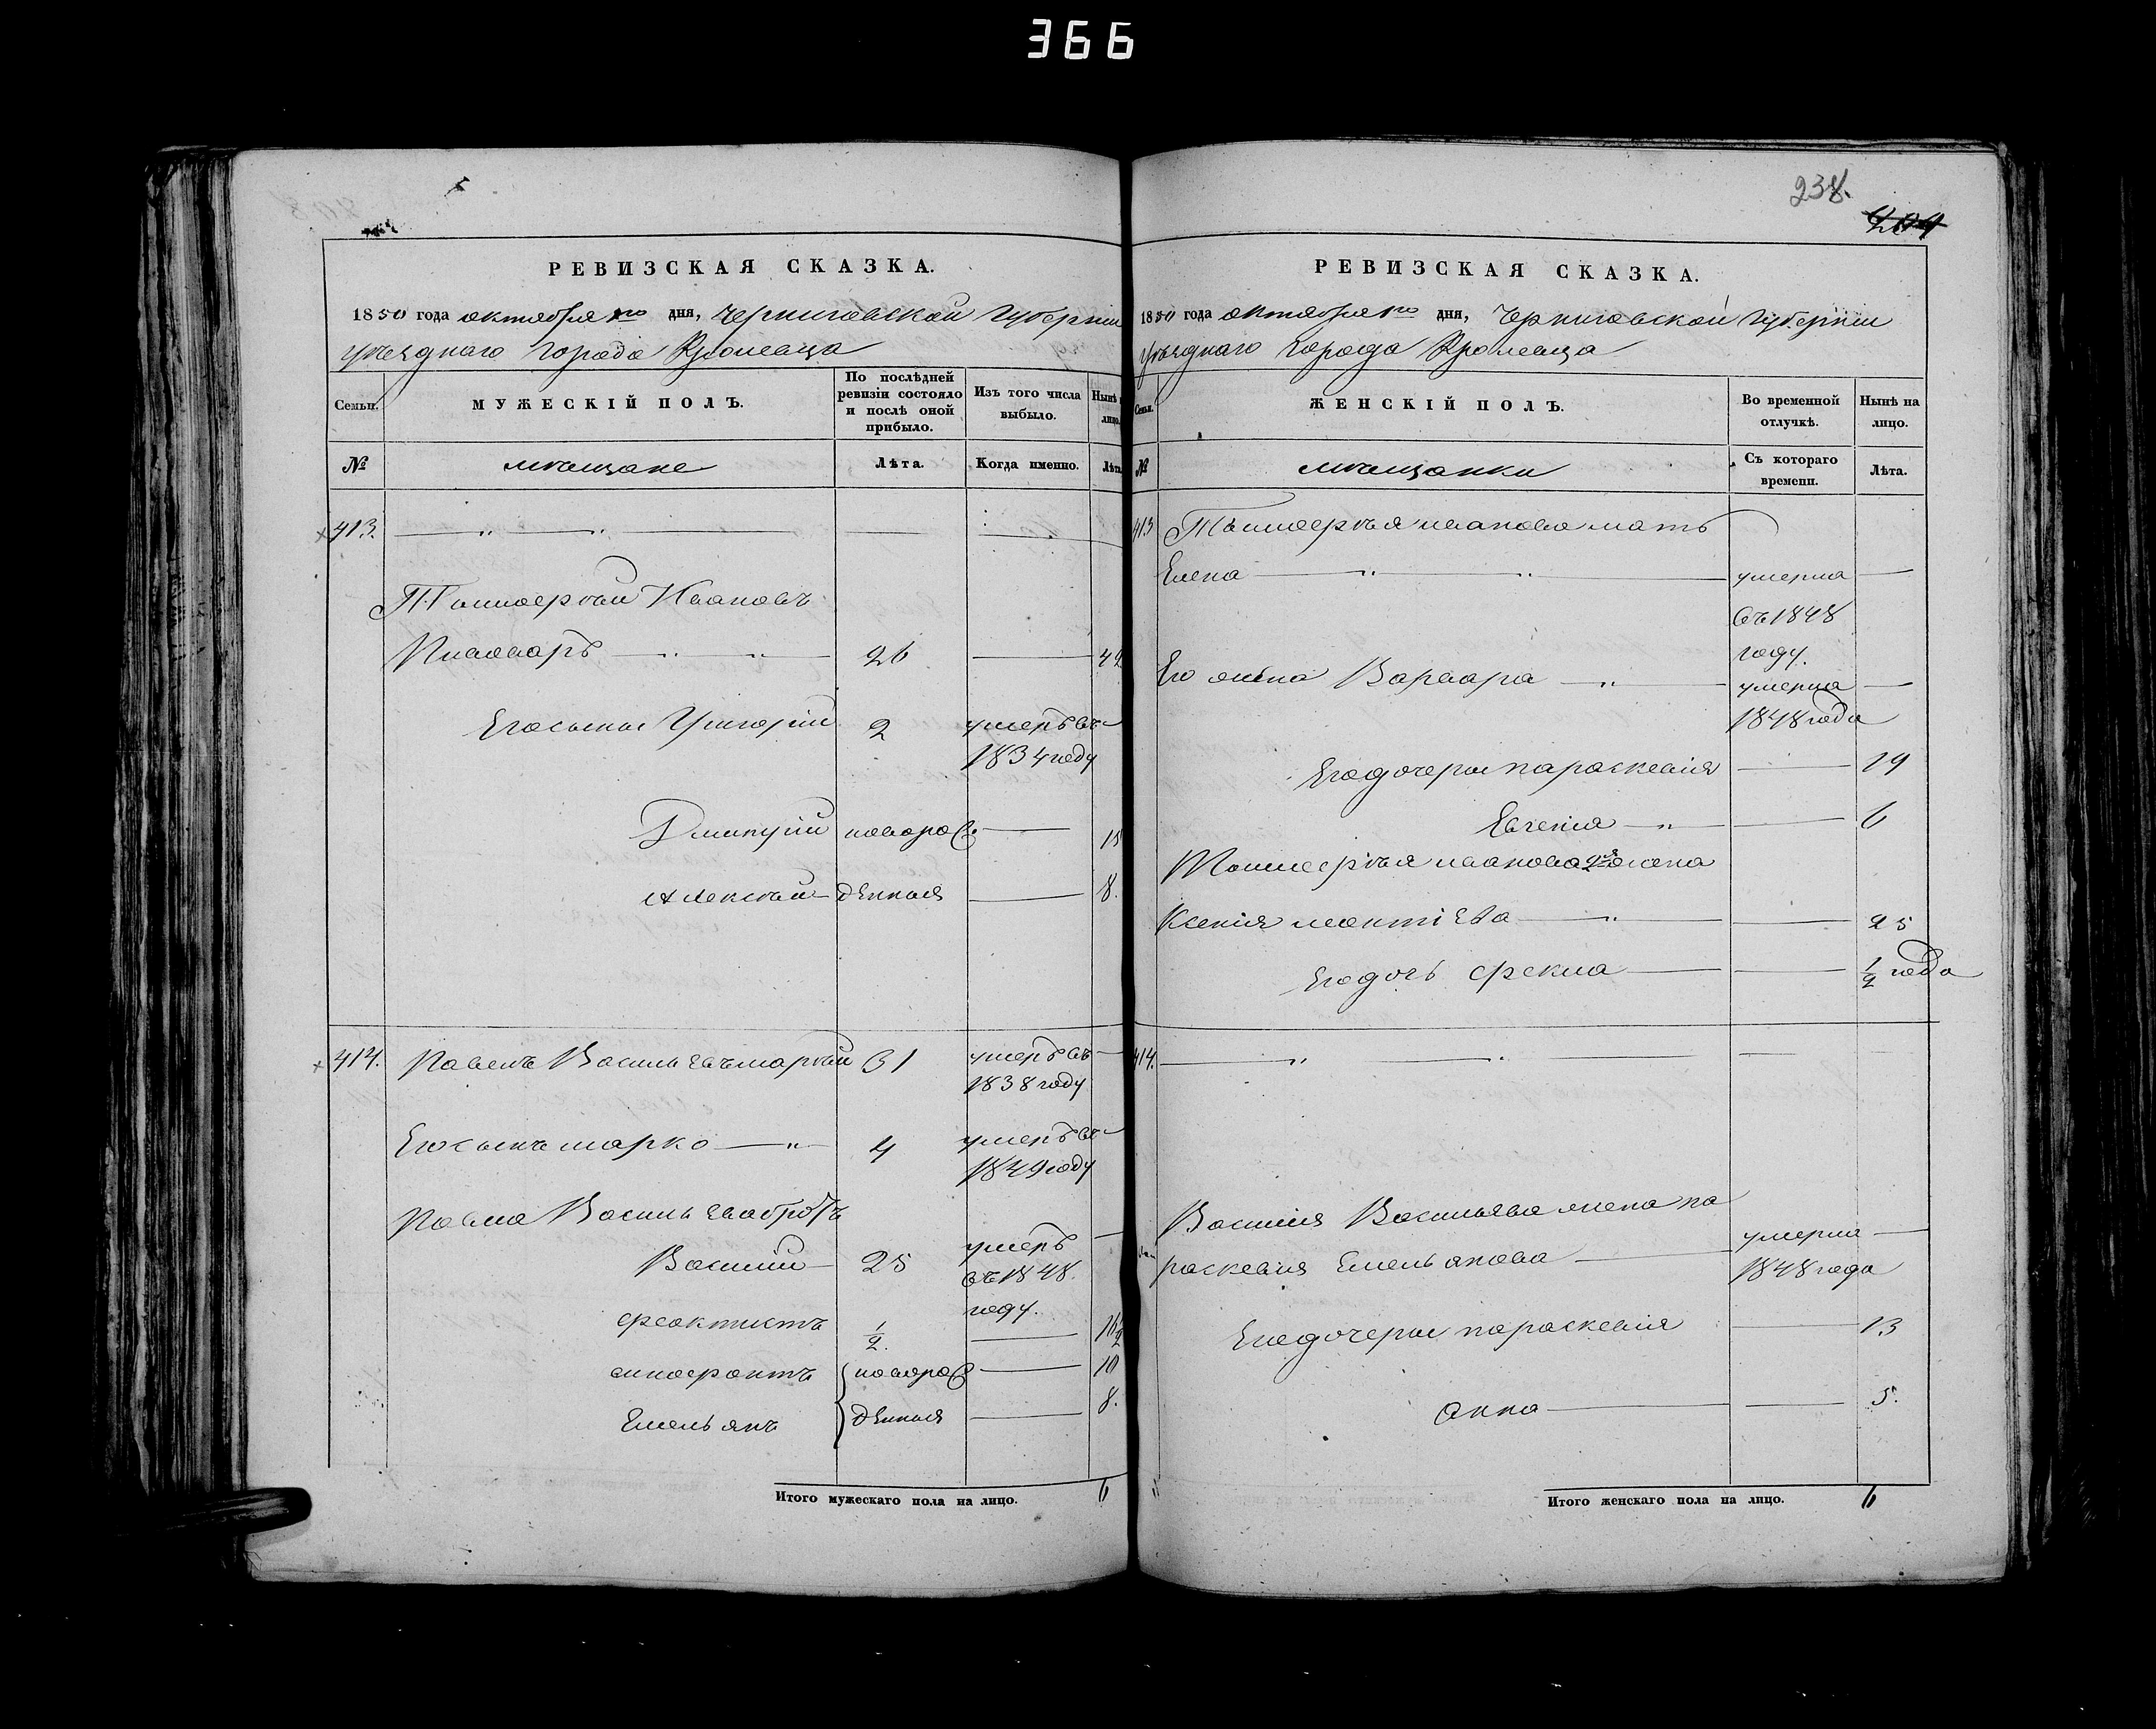 366
РЕВИЗСКАЯ СКАЗКА.
1850 года октября 1го дня, Черниговской Губерніи
уѣзднаго города Кролевца
Семьи.
МУЖЕСКІЙ ПОЛЪ.
По послѣдней ревизіи состояло и послѣ оной прибыло.
Изъ того числа выбыло.
Нынѣ на лицо.
№
мѣщане
Лѣта.
Когда именно.
Лѣта
413.
Тимоѳей Ивановъ
Пивоваръ 26 42
Его сыны Григорій 2 умеръ въ
1834 году
Дмитрій новоро 15
Алексѣй жденныя 8.
414. Павелъ Васильевъ 31 умеръ въ
1838 году
Его сынъ Марко 4 умеръ въ
1849 году
Павла Васильева братъ
Василій 25 умеръ
въ 1848.
году.
Феоктистъ 1/2. 16 1/2
новоро 10
Емельянъ жденныя 8.
Итого мужескаго пола на лицо. 6
238.
РЕВИЗСКАЯ СКАЗКА.
1850 года октября 1го дня, Черниговской Губерніи
уѣзднаго города Кролевца
Семьи.
ЖЕНСКІЙ ПОЛЪ.
Во временной отлучкѣ.
Нынѣ на лицо.
№
мѣщанки
Съ котораго времени.
Лѣта.
413 Тимоѳея Иванова мать
Елена умерла
въ 1848
году.
Его жена Варвара умерла
1848 года
Его дочери Параскевія 19
Евгенія 6
Тимоѳея Иванова 2я жена
Ксенія 25
Его дочь Фекла 1/2 года
414.
Василія Васильева жена Па
раскевія Емельянова умерла
1848 года
Его дочери Параскевія 13
Анна 5.
Итого женскаго пола на лицо. 6